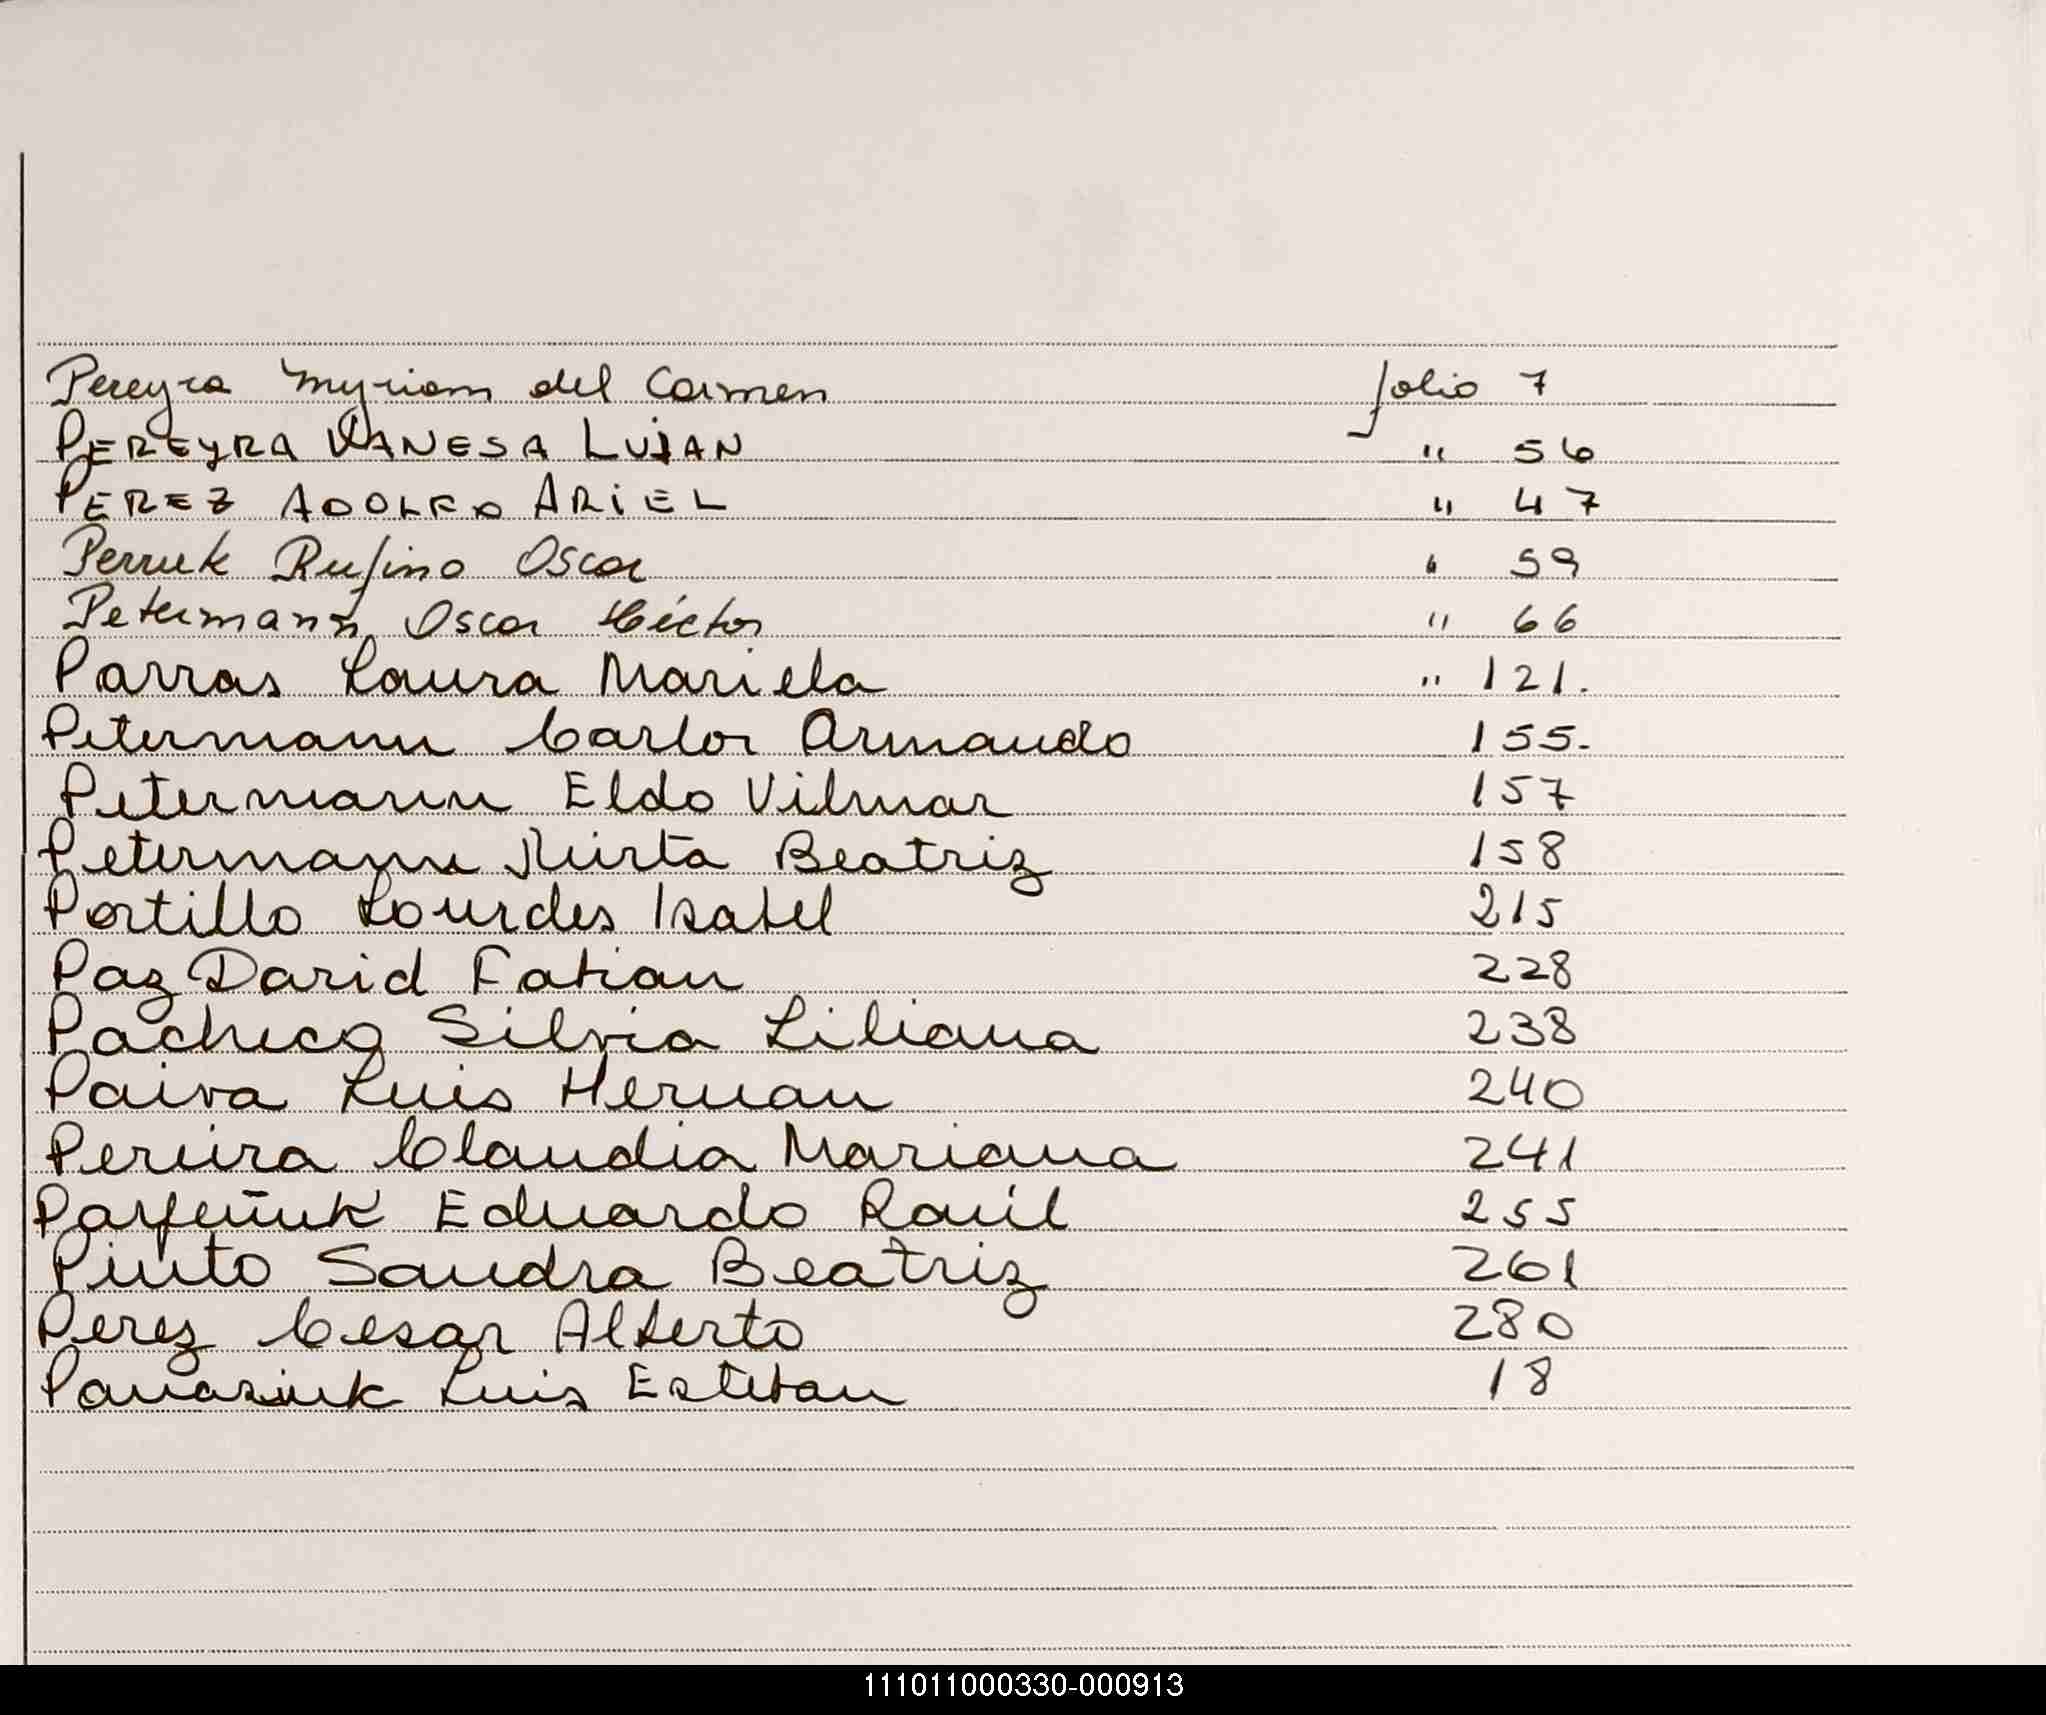 Pereyra Myriam del Carmen folio 7
PEREYRA VANESA LUJAN " 56
PEREZ ADOLFO ARIEL " 47
Perruk Rufino Oscar " 59
Petermann Oscar Héctor " 66
Parras Laura Mariela " 121.
Petermann Carlos Armando 155.
Petermann Eldo Vilmar 157
Petermann Mirta Beatriz 158
Portillo Lourdes Isabel 215
Paz David Fabian 228
Pacheco Silvia Liliana 238
Paiva Luis Hernan 240
Pereira Claudia Mariana 241
Parfeñuk Eduardo Raúl 255
Pinto Sandra Beatriz 261
Perez Cesar Alberto 280
Panasiuk Luis Esteban 18
111011000330-000913